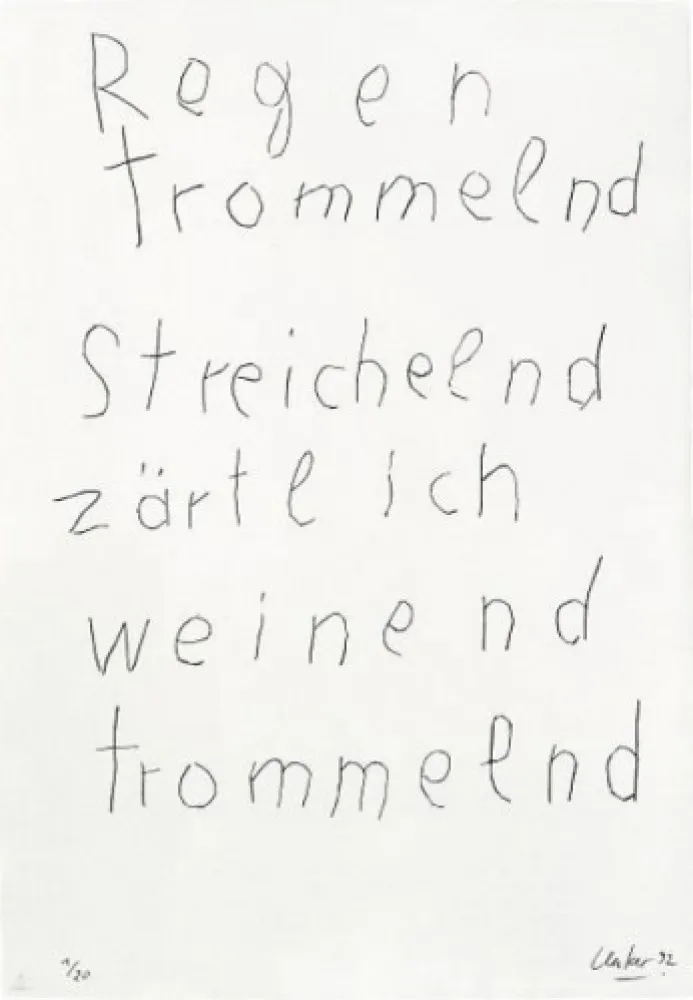 Regen
trommelnd
Streichelnd
zärtlich
weinend
trommelnd
1/20